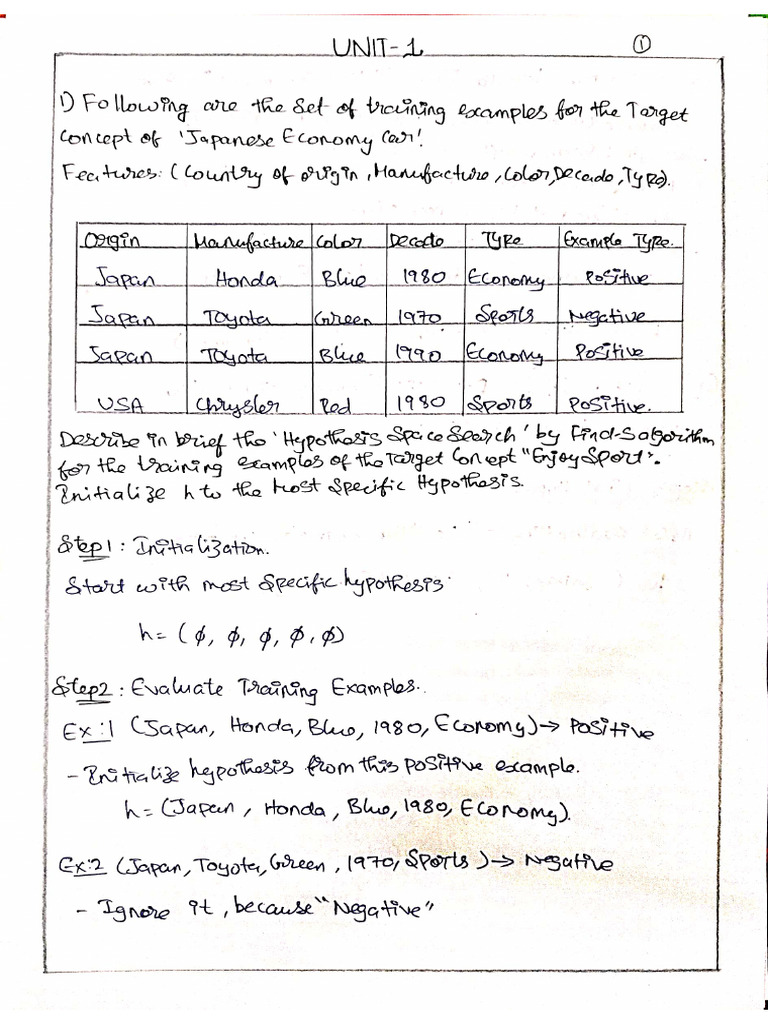 UNIT-1
①
1) Following are the set of training examples for the Target
Concept of 'Japanese Economy Car'.
Features: (Country of origin, Manufacture, Color, Decade, Type).
Origin Manufacture Color Decade Type Example Type.
Japan Honda Blue 1980 Economy Positive
Japan Toyota Green 1970 Sports Negative
Japan Toyota Blue 1990 Economy Positive
USA Chrysler Red 1980 Sports Positive.
Describe in brief the 'Hypothesis Space Search' by Find-S algorithm
for the training examples of the Target Concept "Enjoy Sport".
Initialize h to the Most Specific Hypothesis.
Step1: Initialization.
Start with most specific hypothesis
h = (ϕ, ϕ, ϕ, ϕ, ϕ)
Step2: Evaluate Training Examples.
Ex:1 (Japan, Honda, Blue, 1980, Economy) → Positive
- Initialize hypothesis from this positive example.
h = (Japan, Honda, Blue, 1980, Economy).
Ex:2 (Japan, Toyota, Green, 1970, Sports) → Negative
- Ignore it, because "Negative"